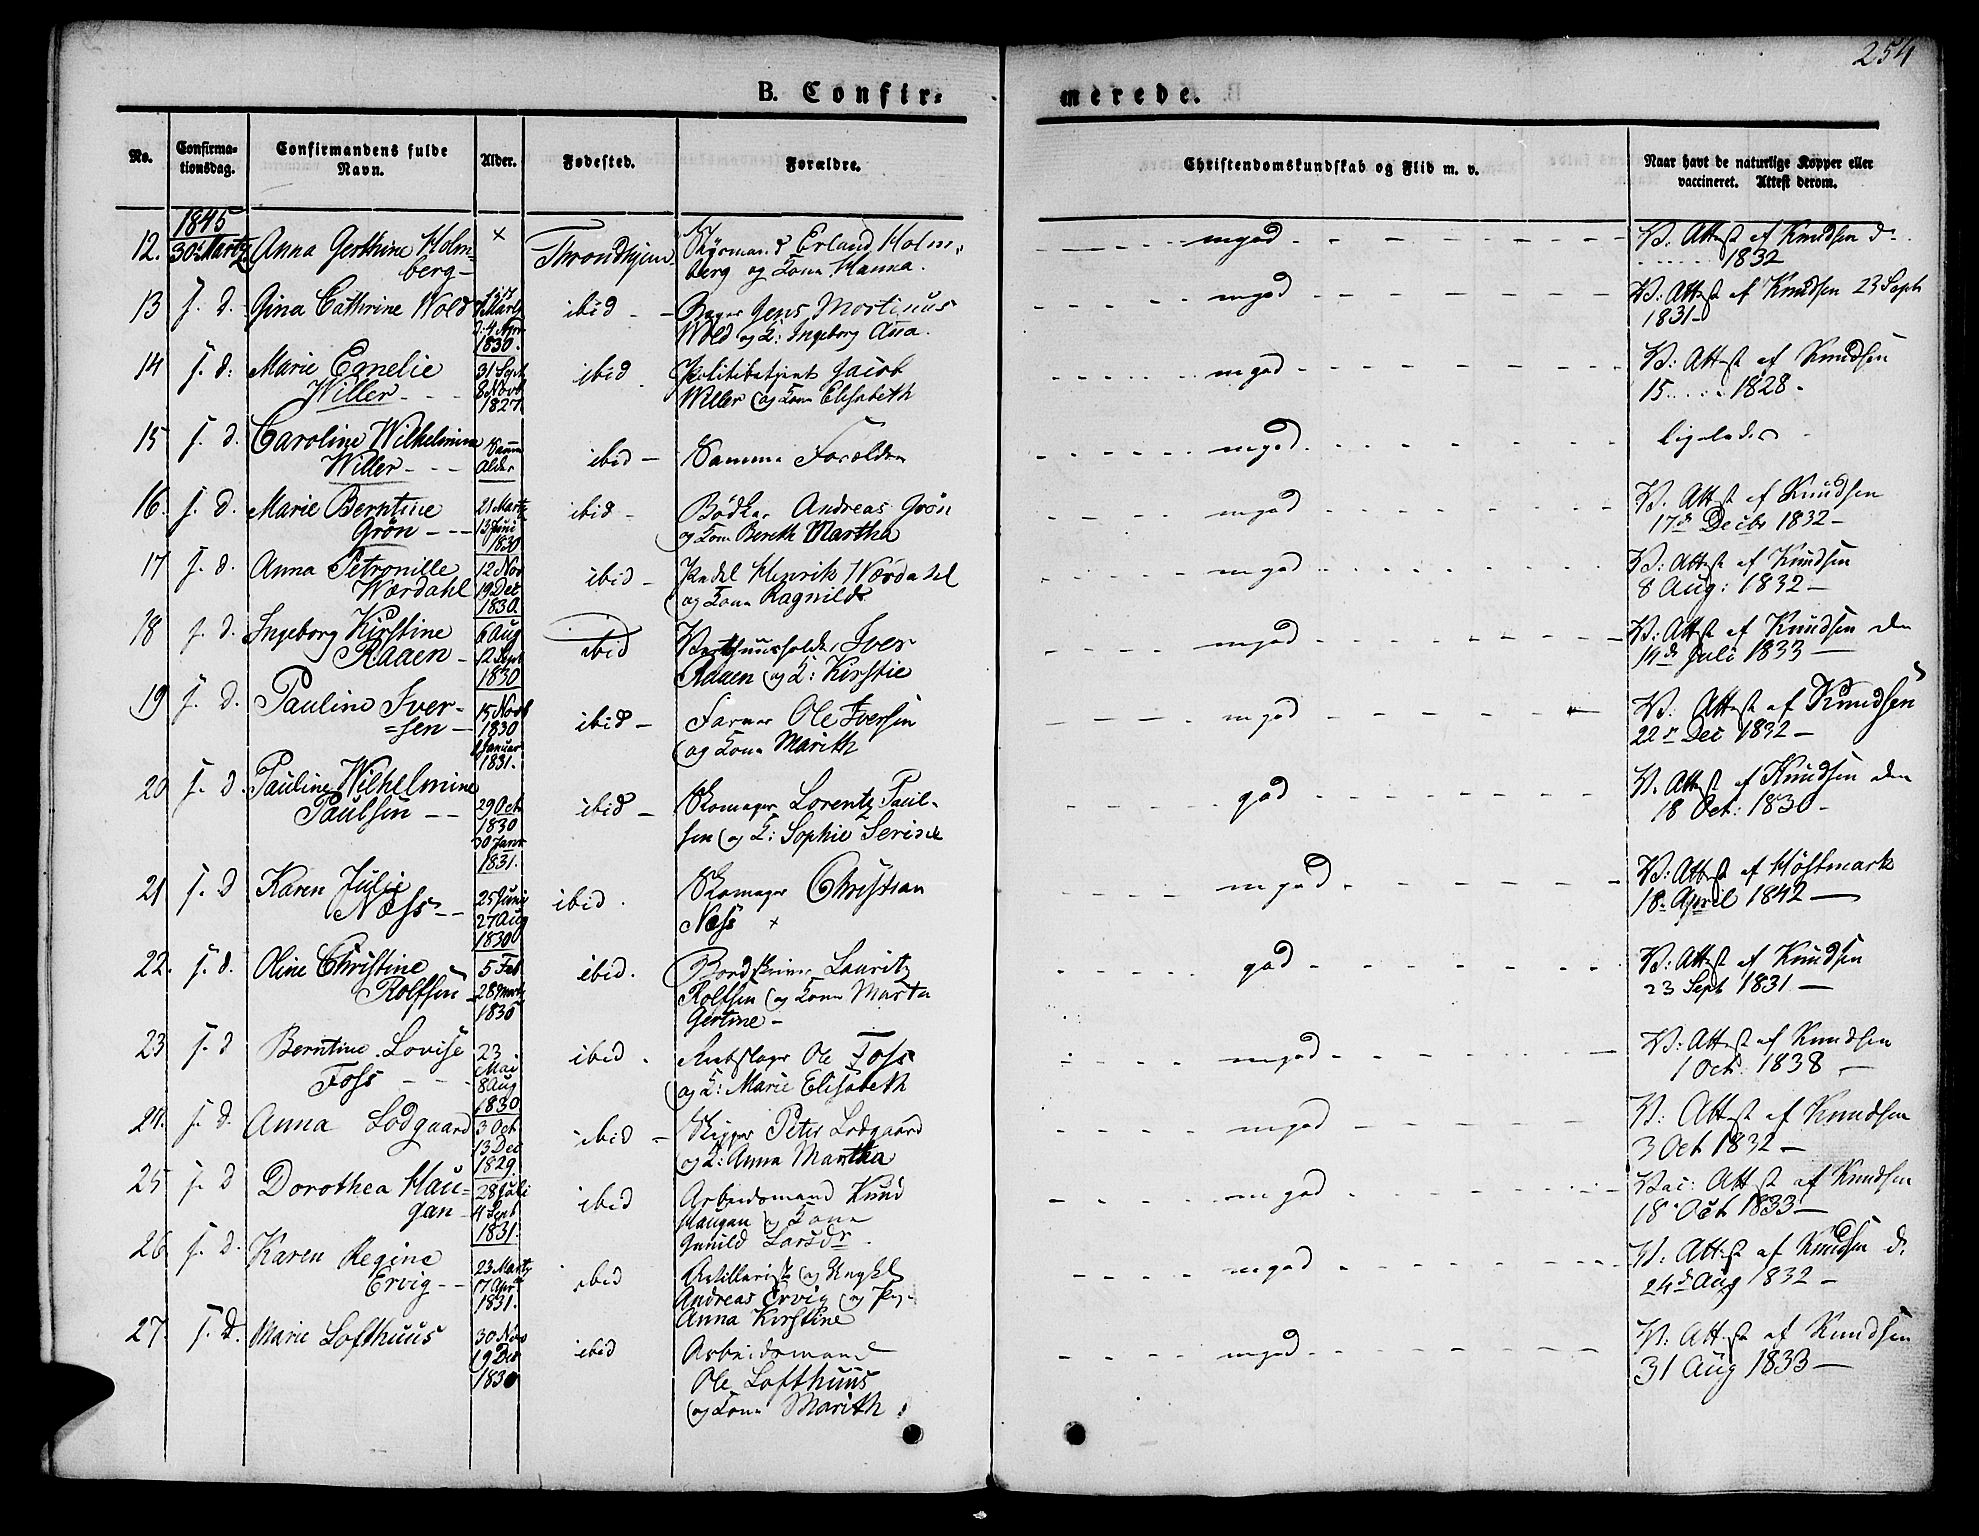 254
B. Confir-
merede.
No.
Confirma-
tionsdag.
Confirmandens fulde
Navn.
Alder.
Fødested.
Forældre.
Christendomskundskab og Flid m. v.
Naar havt de naturlige Kopper eller
vaccineret. Attest derom.
1845
12. 30 Martz Anna Gerthine Holm- × Throndhjem Erland Holm- mgod V. Attest af Knudsen d.
berg og Kone Hanna. 1832
13 f. d. Gina Cathrine Wold Martz ibid Bager Jens Mortinus mgod V: Attest af Knudsen 23 Sept
4 Apr Wold og K: Ingeborg Ana. 1831
1830.
14 f. d. Marie Emelie 31 Sept ibid Politibetjent Jacob mgod V: Attest af Knudsen
Willer 8 Novb Willer og Kone Elisabeth 15 1828.
1827
15 f. d. Caroline Wilhelmine Samme ibid Samme Forældre mgod ligeledes
Willer Alder
16. f. d. Marie Berntine 21 Martz ibid Bødker Andreas Grøn mgod V. Attest af Knudsen
Grøn 13 Juni og Kone Bereth Martha 17de Decbr 1832
1830
17 f. d. Anna Petronille 12 Nov ibid Henrik Værdahl mgod V: Attest af Knudsen
Værdahl 19 Dec og Kone Ragnild 8 Aug: 1832
1830.
18 f. d. Ingeborg Kirstine 6 Aug ibid Værthuusholder Iver mgod V: Attest af Knudsen den
Raaen 12 Sept Raaen og K: Kirstie 19de Juli 1833
1830
19 f. d. Pauline Iver- 15 Novb ibid Farver Ole Iversen mgod V. Attest af Knudsen
=sen 1830 og Kone Marith 22 Dec 1832
1 Januar
1831.
20 f. d. Pauline Wilhelmine 29 Oct ibid Skomager Lorentz Paul- god V. Attest af Knudsen den
Paulsen 1830 sen og K: Sophie 18 Oct: 1830
30 Janr
1831.
21 f. d Karen Julie 25 Juni ibid. Skomager Christian mgod V: Attest af Høstmark
Næss 27 Aug Næss × 18 April 1842
1830
22. f. d. Oline Christine 5 Feb ibid. Bordskriver Lauritz god V: Attest af Knudsen
Rolfsen 28 Martz Rolfsen og Kone Marta 23 Sept 1831
1830 Gertine
23 f. d Berntine Lovise 23 ibid. Rebslager Ole Foss mgod V: Attest af Knudsen
Foss Mai og K: Marie Elisabeth 1 Oct. 1838
8 Aug
1830
24. f. d. Anna Lodgaard 3 Oct ibid Skipper Peter Lodgaard mgod V: Attest af Knudsen
13 Dec og K: Anna Martha 3 Oct 1832
1829.
25 f. d Dorothea Hau- 28 Juli ibid Arbeidsmand Knud mgod Vac: Attest af Knudsen
gan 4 Sept Haugan og Kone 18 Oct 1833
1831. Gunild Larsdr.
26 f. d. Karen Regine 23 Martz ibid Artillerist og mgod V: Attest af Knudsen d.
Ervig 17 Apr Andreas Ervig og 24de Aug 1832
1831. Anna Kirstine
27. f. d. Marie Lofthuus 30 Nov ibid Arbeidsmand mgod V. Attest af Knudsen
19 Dec Ole Lofthuus 31 Aug 1833
1830 og Kone Marith